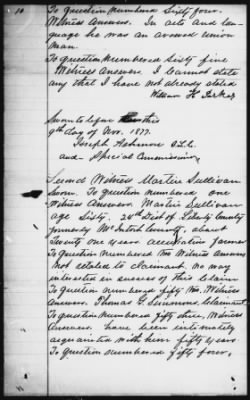 10
To Question Numbered Sixty four.
Witness Answers. In acts and lan-
guage he was an avowed union
man.
To question Numbered Sixty five
Witness Answers. I cannot state
any that I have not already stated
William H
Sworn to before this
9th day of Nov. 1877.
Joseph Ashmore
and Special Commissioner
Second Witness Martin Sullivan
Sworn. To question numbered one
Witness Answers. Martin Sullivan
age Sixty. 28th Dist of Liberty County
formerly McIntosh County, about
Twenty one years occupation farmer
To question Numbered two Witness Answers
Not related to claimant, no way
interested in success of this Claim
To question numbered fifty two, Witness
Answers. Thomas G. Simmons, Claimant
To question numbered fifty three, Witness
Answers. have been intimately
acquainted with him fifty years
To question numbered fifty four,